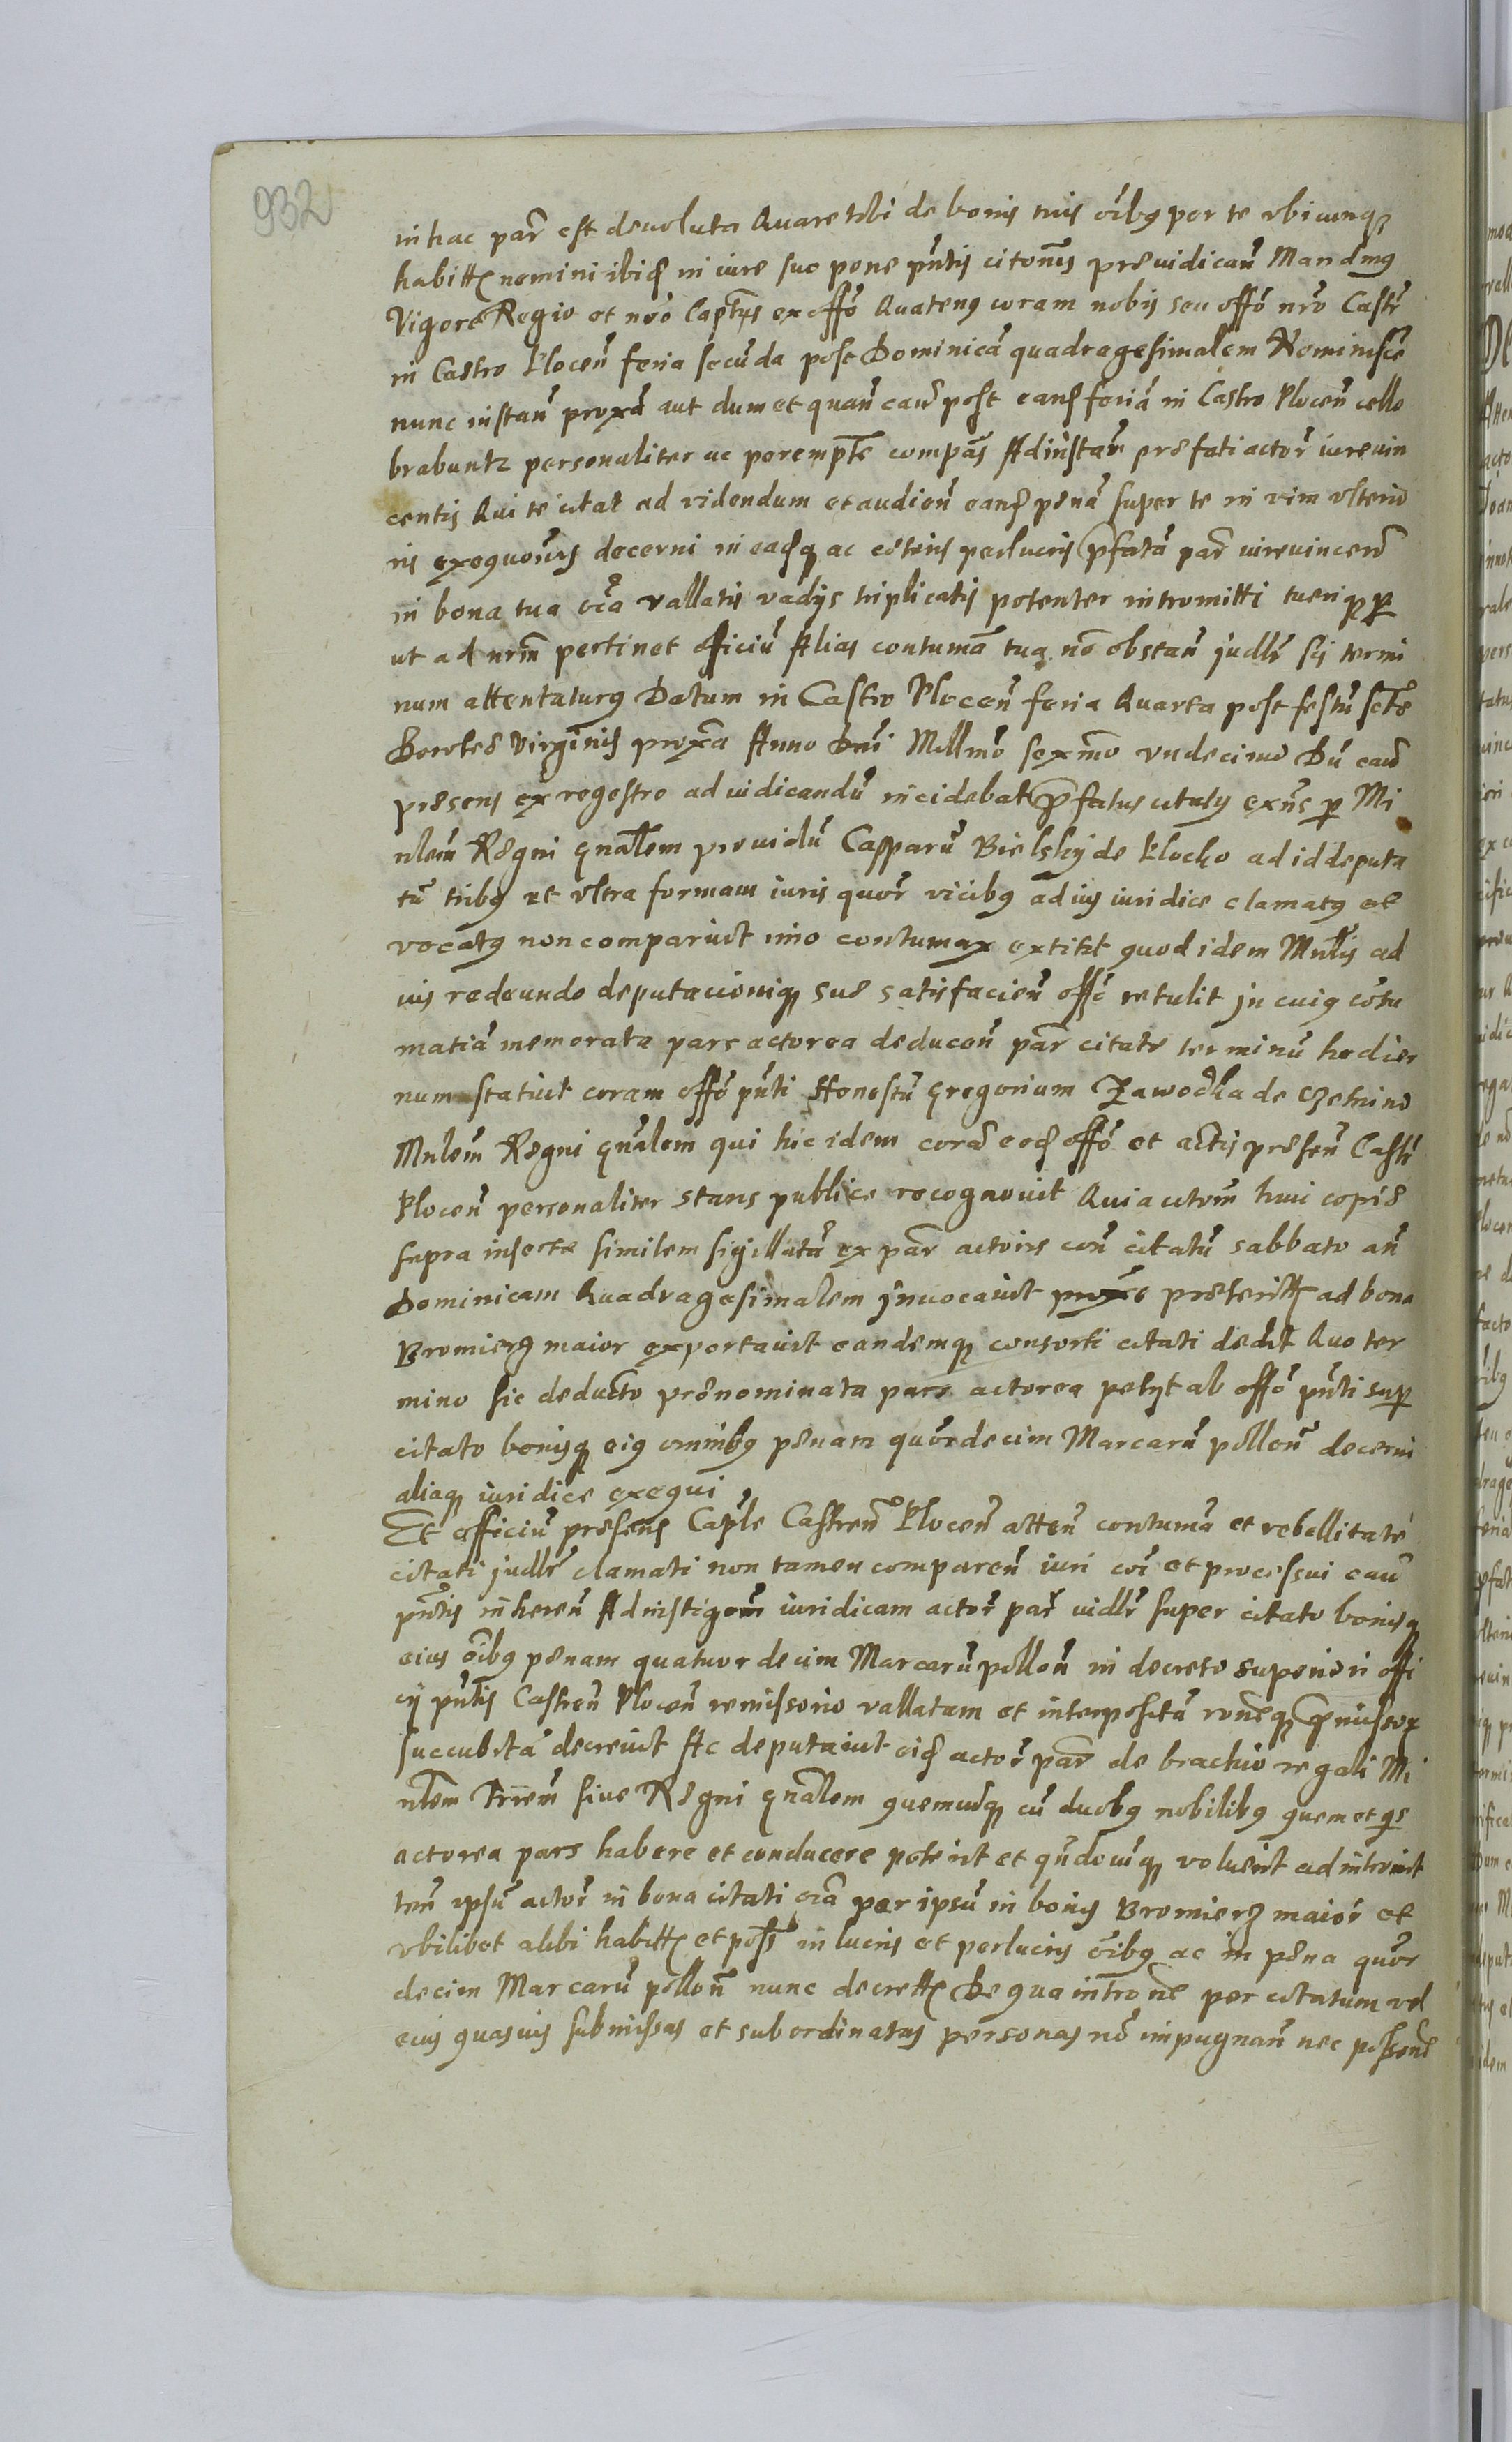 932
in hac par̃ est deuoluta Quare tibi de bonis tuis oĩbq per te vbicunq
habitt nomini ibid in iure suo pene pñtis citonis preiudicañ Mandmq
Vigore Regio et nr̃o Captus ex offõ Quatenq coram nobis seu offõ nr̃o Castr̃
in Castro Plocen̄ feria secũda post Dominicã quadragesimalem Reminisce
nunc instañ proxã aut dum et quañ cau post eand feriã in Castro Plocen̄ celle
brabuntz personaliter ac perempte compãs Ad instañ prefati actor̃ iureuin
centis Qui te citat ad videndum et audieñ eand penã super te in vim vlterio
ris exequonis decerni in eadq ac ceteris perlucris p̃fatã par̃ iureuincen
in bona tua oĩa vallatis vadijs triplicatis potenter intromitti tueriq p
ut ad nr̃m pertinet officiũ Alias contumã tua nõ obstañ judlr̃ sis termi
num attentaturq Datum in Castro Plocen̄ feria Quarta post festũ Scte
Dorothe Virginis proxa Anno Dni Millmo sexmo vndecimo Dũ cau
presens ex regestro ad iudicandũ incidebat p̃fatus citatq exñs p Mi
nlem Regni gnalem prouidũ Casparũ Bielsky de Plocko ad id deputa
tũ tribq et vltra formam iuris quor̃ vicibq ad ius iuridice clamatq et
vocatq non comparuit imo contumax extitit quod idem Mnlis ad
ius redeundo deputacioniq sue satisfacieñ offõ retulit jn cuiq cõtu
matiã memorata pars actorea deduceñ par̃ citate terminũ hodier
num statuit coram offõ pñti Honestũ Gregorium Zawodka de
Mnlem Regni gnalem qui hic idem corã eod offõ et actis preseñ Castr̃
Plocen̄ personaliter stans publice recognouit Quia citom huic copie
supra inserte similem sigillatã ex par̃ actoris coñ citatũ sabbato añ
Dominicam Quadragesimalem jnuocauit proxe preteritt ad bona
Bromierz maior exportauit eandemq consorti citati dedit Quo ter
mino sic deducto prenominata pars actorea petyt ab offõ pñti sup
citato bonisq eiq omnibq penam quordecim Marcarũ pollon̄ decerni
aliaq iuridice exequi
Et officiũ presens Caple Castren̄ Plocen̄ atteñ contumã et rebellitatẽ
citati judlr̃ clamati non tamen compareñ iuri coĩ et processui cau
pñtis inhereñ Ad instigom iuridicam actor̃ par̃ uidlr̃ super citato bonisq
eius oĩbq penam quatuordecim Marcarũ pollon̄ in decreto superiori offi
cij pñtis Castren̄ Plocen̄ remissorio vallatam et interpositã roneq p̃missor
succubitã decreuit Ac deputauit eid actor̃ par̃ de brachio regali Mi
nlem Triem siue Regni gnalem quemuisq cũ duobq nobilibq quem et qs
actorea pars habere et conducere poterit et qñdocũq voluerit ad intromit
ten̄ ipsũ actor̃ in bona citati oĩa per ipsũ in bonis Bromierz maior et
vbilibet alibi habitt et poss̃ in lucris et perlucris oĩbq ac in pena quor
decim Marcarũ pollon̄ nunc decrett De qua introne per citatum vel
eius quasuis submissas et subordinatas personas nõ impugnañ nec